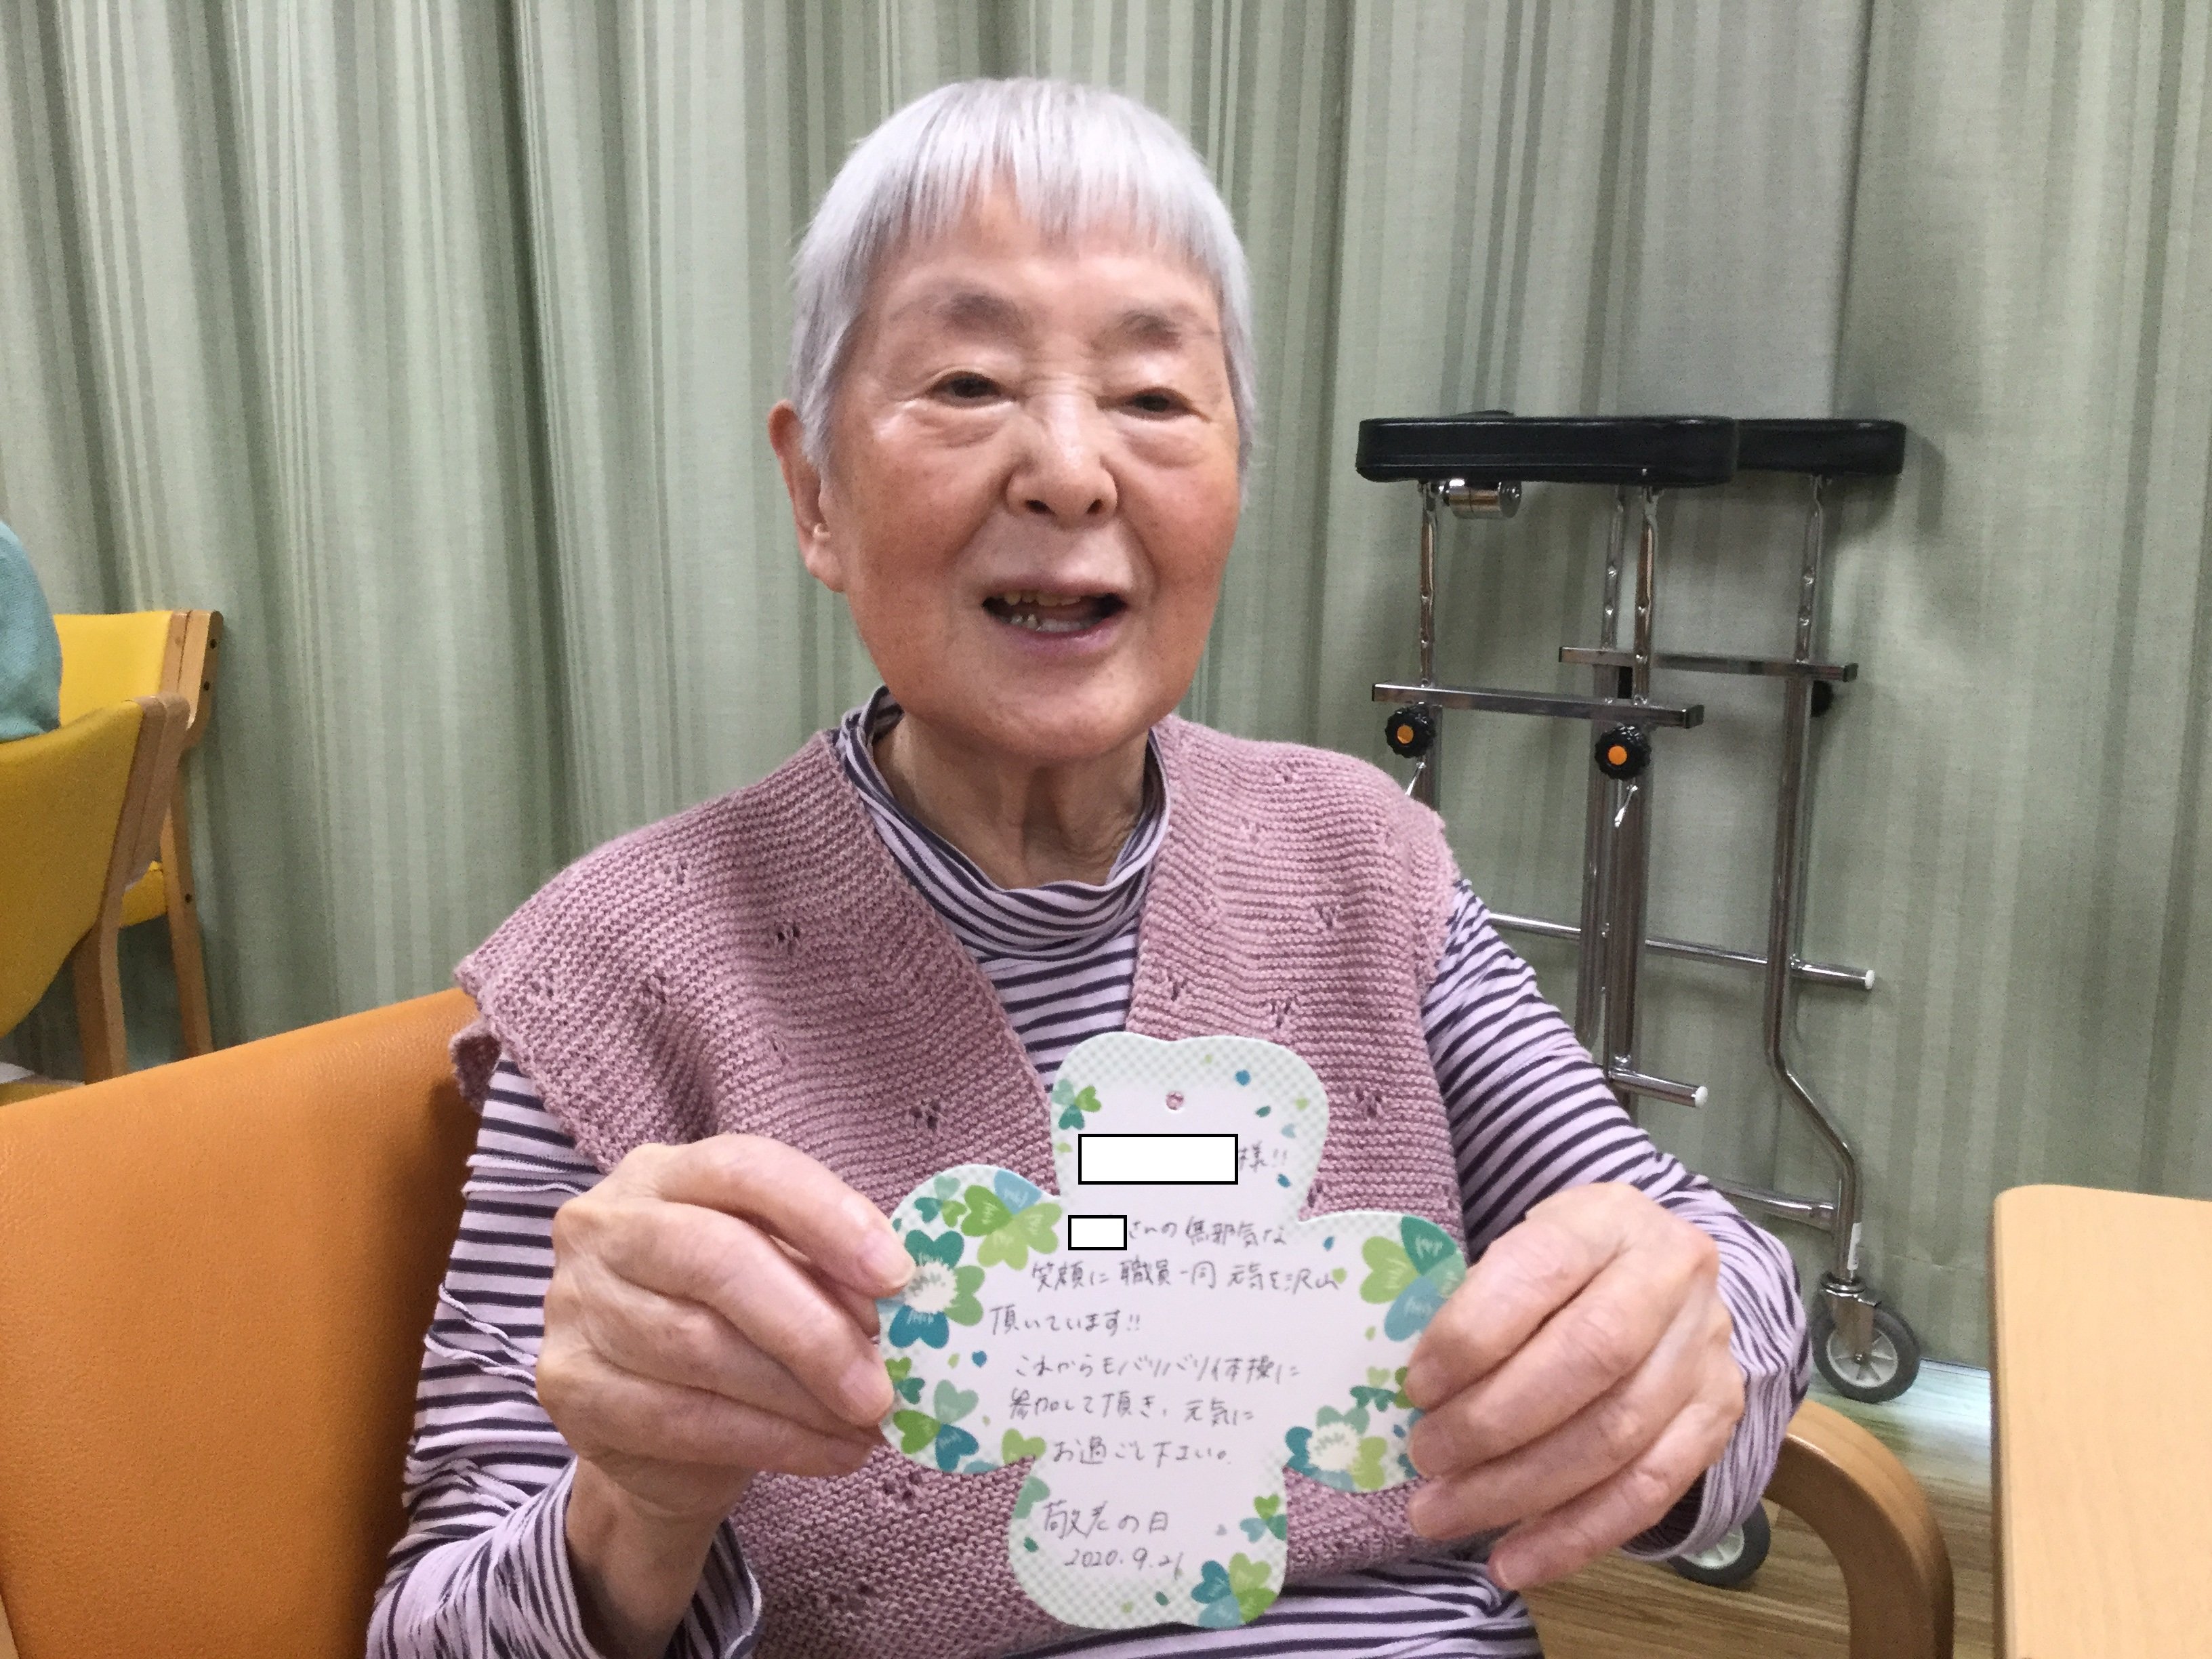 様!!
さんの無邪気な
笑顔に職員一同 元気を沢山
頂いています!!
これからもバリバリ体操に
参加して頂き、元気に
お過ごし下さい。
敬老の日
2020.9.21